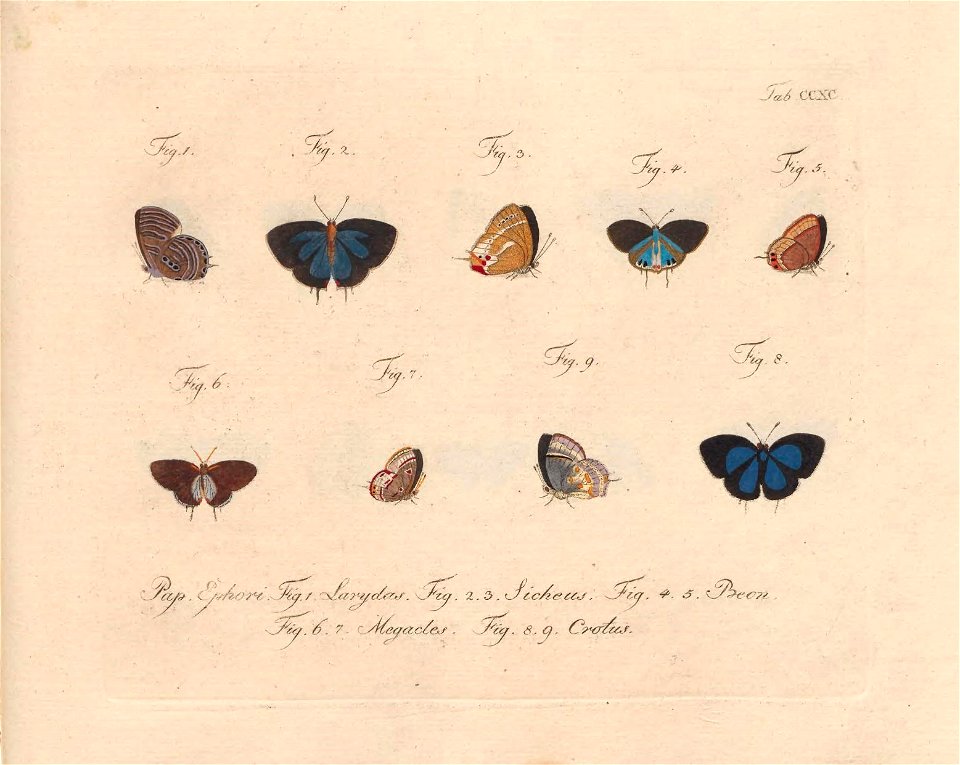 Tab CCXC
Fig. 1.
Fig. 2.
Fig. 3.
Fig. 4.
Fig. 5.
Fig. 6.
Fig. 7.
Fig. 9.
Fig. 8.
Pap. Ephori. Fig 1. Larydas. Fig. 2. 3. Sicheus. Fig. 4. 5. Beon.
Fig. 6. 7. Megacles. Fig. 8. 9. Crotus.